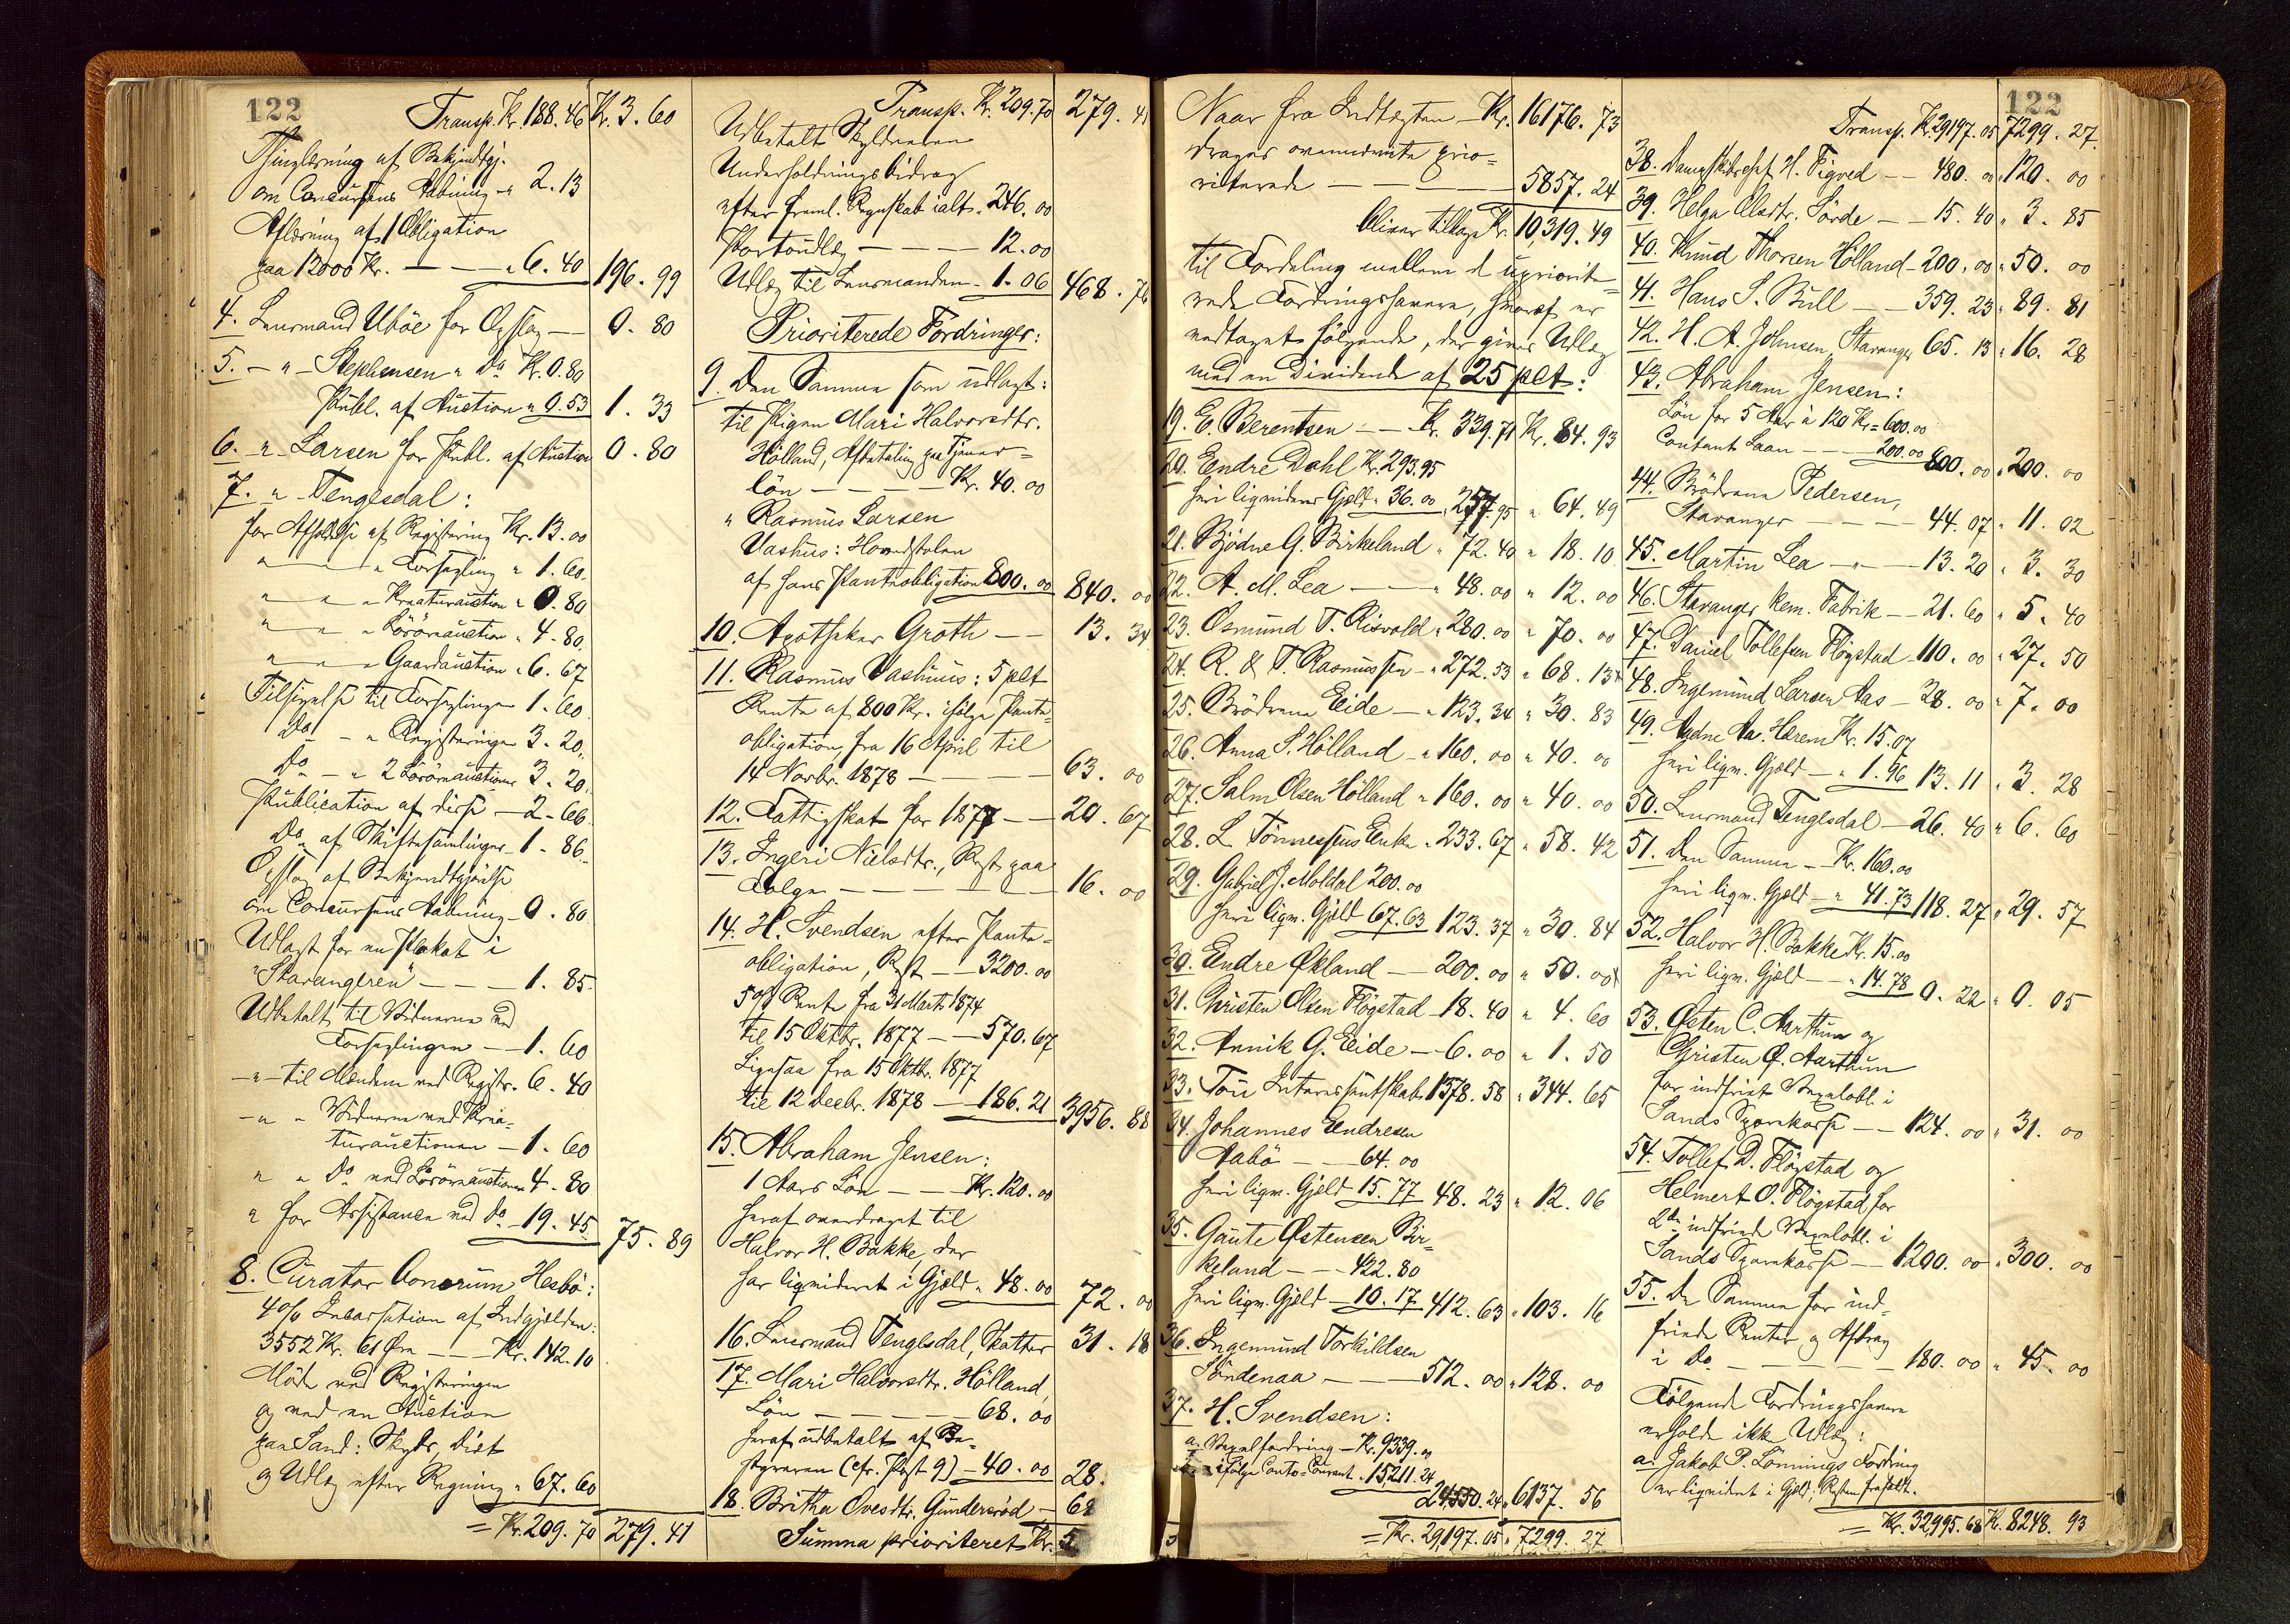 122
Transp. Kr. 188.46 Kr. 3.60
Thinglæsning af Bekjendtgj.
om Concursens Aabning - " 2.13
Aflæsning af 1 Obligation
paa 12000 Kr. — — " 6.40 196.99
4. Lensmand Uböe for Opslag — 0.80
5. — " — Stephensen " Do Kr. 0.80
Publ. af Auction " 0.53 1.33
6. — " — Larsen for Publ. af Auction 0.80
7. — " — Tengesdal:
for Afholdelse af Registering Kr. 13.00
" — " — Forsegling " 1.60
" — " — Kreaturauction " 0.80
" — " — Lösöreauction " 4.80
" — " — Gaardauction " 6.67
Tilsigelse til Forseglingen 1.60
Do — " Registeringen 3.20
Do — " 2 Lösöreauctioner 3.20
Publication af disse — 2.66
Do af Skiftesamlinger — 1.86
Opslag af Bekjendtgjörelse
om Concursens Aabning - 0.80
Udlagt for en Plakat i
"Stavangeren" — — — 1.85
Udbetalt til Vidnerne ved
Forseglingen — 1.60
— " — til Mændene ved Registr. 6.40
— " " Vidnerne ved Krea-
turauctionen — 1.60
" " Do ved Lösöreauctionen 4.80
" for Assistance ved do - 19.45 75.89
8. Curator bonorum Hesbö:
4 % Incassation af Indgjælden:
3552 Kr. 61 Öre — — Kr. 142.10
Möde ved Registeringen
og ved en Auction
paa Sand: Skyds, Diæt
og Udlæg efter Regning " 67.60
= Kr. 209.70 279.41
Transp. Kr. 209.70 279.41
Udbetalt Skyldneren
Underholdningsbidrag
efter freml. Regnskab ialt " 246.00
Portoudlæg — — — — 12.00
Udlæg til Lensmanden - 1.06 468.76
Prioriterede Fordringer:
9. Den Samme som udlagt:
til Pigen Mari Halvorsdtr.
Hölland, Afbetaling paa Tjener-
lön — — — — Kr. 40.00
" Rasmus Larsen
Vashus: Hovedstolen
af hans Panteobligation 800.00 840.00
10. Apotheker Groth — — 13.34
11. Rasmus Vashuus: 5 pCt
Rente af 800 Kr. ifölge Pante-
obligation fra 16 April til
14 Novbr. 1878 — — — 63.00
12. Fattigskat for 1877 — — 20.67
13. Ingeri Nielsdtr., Rest paa
Folge — — — — — 16.00
14. H. Svendsen efter Pante-
obligation, Rest — 3200.00
5 % Rente fra 31 Marts 1874
til 15 Oktbr. 1877 — — 570.67
Ligesaa fra 15 Oktbr. 1877
til 12 Decbr. 1878 — 186.21 3956.88
15. Abraham Jensen:
1 Aars Lön — — Kr. 120.00
heraf overdraget til
Halvor H. Bakke, der
har liqvideret i Gjæld " 48.00 72.00
16. Lensmand Tengesdal, Skatter 31.18
17. Mari Halvorsdtr. Hölland,
Lön — — — — 68.00
heraf udbetalt af Be-
styreren (cfr. Post 9) — 40.00 28.
18. Britha Ovesdtr. Gundersrød — 68
Summa prioriteret Kr. 5
Naar fra Indtægten — Kr. 16176.73
drages ovennævnte prio-
riterede — — — — 5857.24
bliver tilbage Kr. 10,319.49
til Fordeling mellem de uprioriterede
rede Fordringshavere, hvoraf er
vedtaget Fölgende, der gives Udlæg
med en Dividende af 25 pCt:
19. E. Berentsen — — Kr. 339.71 Kr. 84.93
20. Endre Dahl Kr. 293.95
heri liqvideres Gjæld " 36.00 257.95 " 64.49
21. Bjödne G. Birkeland " 72.40 " 18.10
22. A. M. Lea — — " 48.00 " 12.00
23. Osmund T. Risvold " 280.00 " 70.00
24. R. & T. Rasmussen — " 272.53 " 68.13
25. Brödrene Eide — " 123.34 " 30.83
26. Anna S. Hölland — " 160.00 " 40.00
27. Salm. Olsen Hölland " 160.00 " 40.00
28. L. Tönnessens Enke " 233.67 " 58.42
29. Gabriel J. Moldal 200.00
heri liqv. Gjæld 67.63 123.37 " 30.84
30. Endre Økland — 200.00 " 50.00
31. Christen Olsen Flögstad - 18.40 " 4.60
32. Annik G. Eide — 6.00 " 1.50
33. Tou Interessentskab 1378.58 " 344.65
34. Johannes Endresen
Aabö — — 64.00
heri liqv. Gjæld 15.77 48.23 " 12.06
35. Gaute Østensen Bir-
keland — — 422.80
heri liqv. Gjæld — 10.17 412.63 " 103.16
36. Ingemund Torkildsen
Söndenaa — — — 512.00 " 128.00
37. H. Svendsen:
a. Vexelfordring — Kr. 9339.00
b. ifölge Conto-Courant " 15211.24
24,550.24 " 6137.56
= Kr. 29,197.05 " 7299.27
122
Transp. Kr. 29197.05 7299.27
38. Dampskibsexp. H. Tigved — — 480.00 " 120.00
39. Helga Olsdtr. Sörde — — 15.40 " 3.85
40. Knud Thorsen Hölland - 200.00 " 50.00
41. Hans S. Bull — — 359.23 " 89.81
42. H. A. Johnsen, Stavanger 65.13 " 16.28
43. Abraham Jensen:
Lön for 5 Aar à 120 Kr. = 600.00
Contant Laan — — 200.00 800.00 " 200.00
44. Brödrene Pedersen,
Stavanger — — — 44.07 " 11.02
45. Martin Lea — " — 13.20 " 3.30
46. Stavanger Kem. Fabrik — 21.60 " 5.40
47. Daniel Tollefsen Flögstad - 110.00 " 27.50
48. Ingemund Larsen Aas - 28.00 " 7.00
49. Aadne Aa. Hærem Kr. 15.07
heri liqv. Gjæld — " 1.96 13.11 " 3.28
50. Lensmand Tengesdal — 26.40 " 6.60
51. Den Samme — Kr. 160.00
heri liqv. Gjæld — " 41.73 118.27 " 29.57
52. Halvor H. Bakke Kr. 15.00
heri liqv. Gjæld — " 14.78 0.22 " 0.05
53. Østen C. Aarthun og
Christen Ø. Aarthun
for indfriet Vexelobl. i
Sands Sparekasse — — 124.00 " 31.00
54. Tollef D. Flögstad og
Helmert O. Flögstad for
2de indfriede Vexelobl. i
Sands Sparekasse — 1200.00 " 300.00
55. De Samme for ind-
friede Renter og Afdrag
i Do. — — — — 180.00 " 45.00
Fölgende Fordringshavere
erholde ikke Udlæg:
a. Jakob P. Lönnings Fordring
er liqvideret i Gjæld; Resten frafaldt.
= Kr. 32995.68 Kr. 8248.93